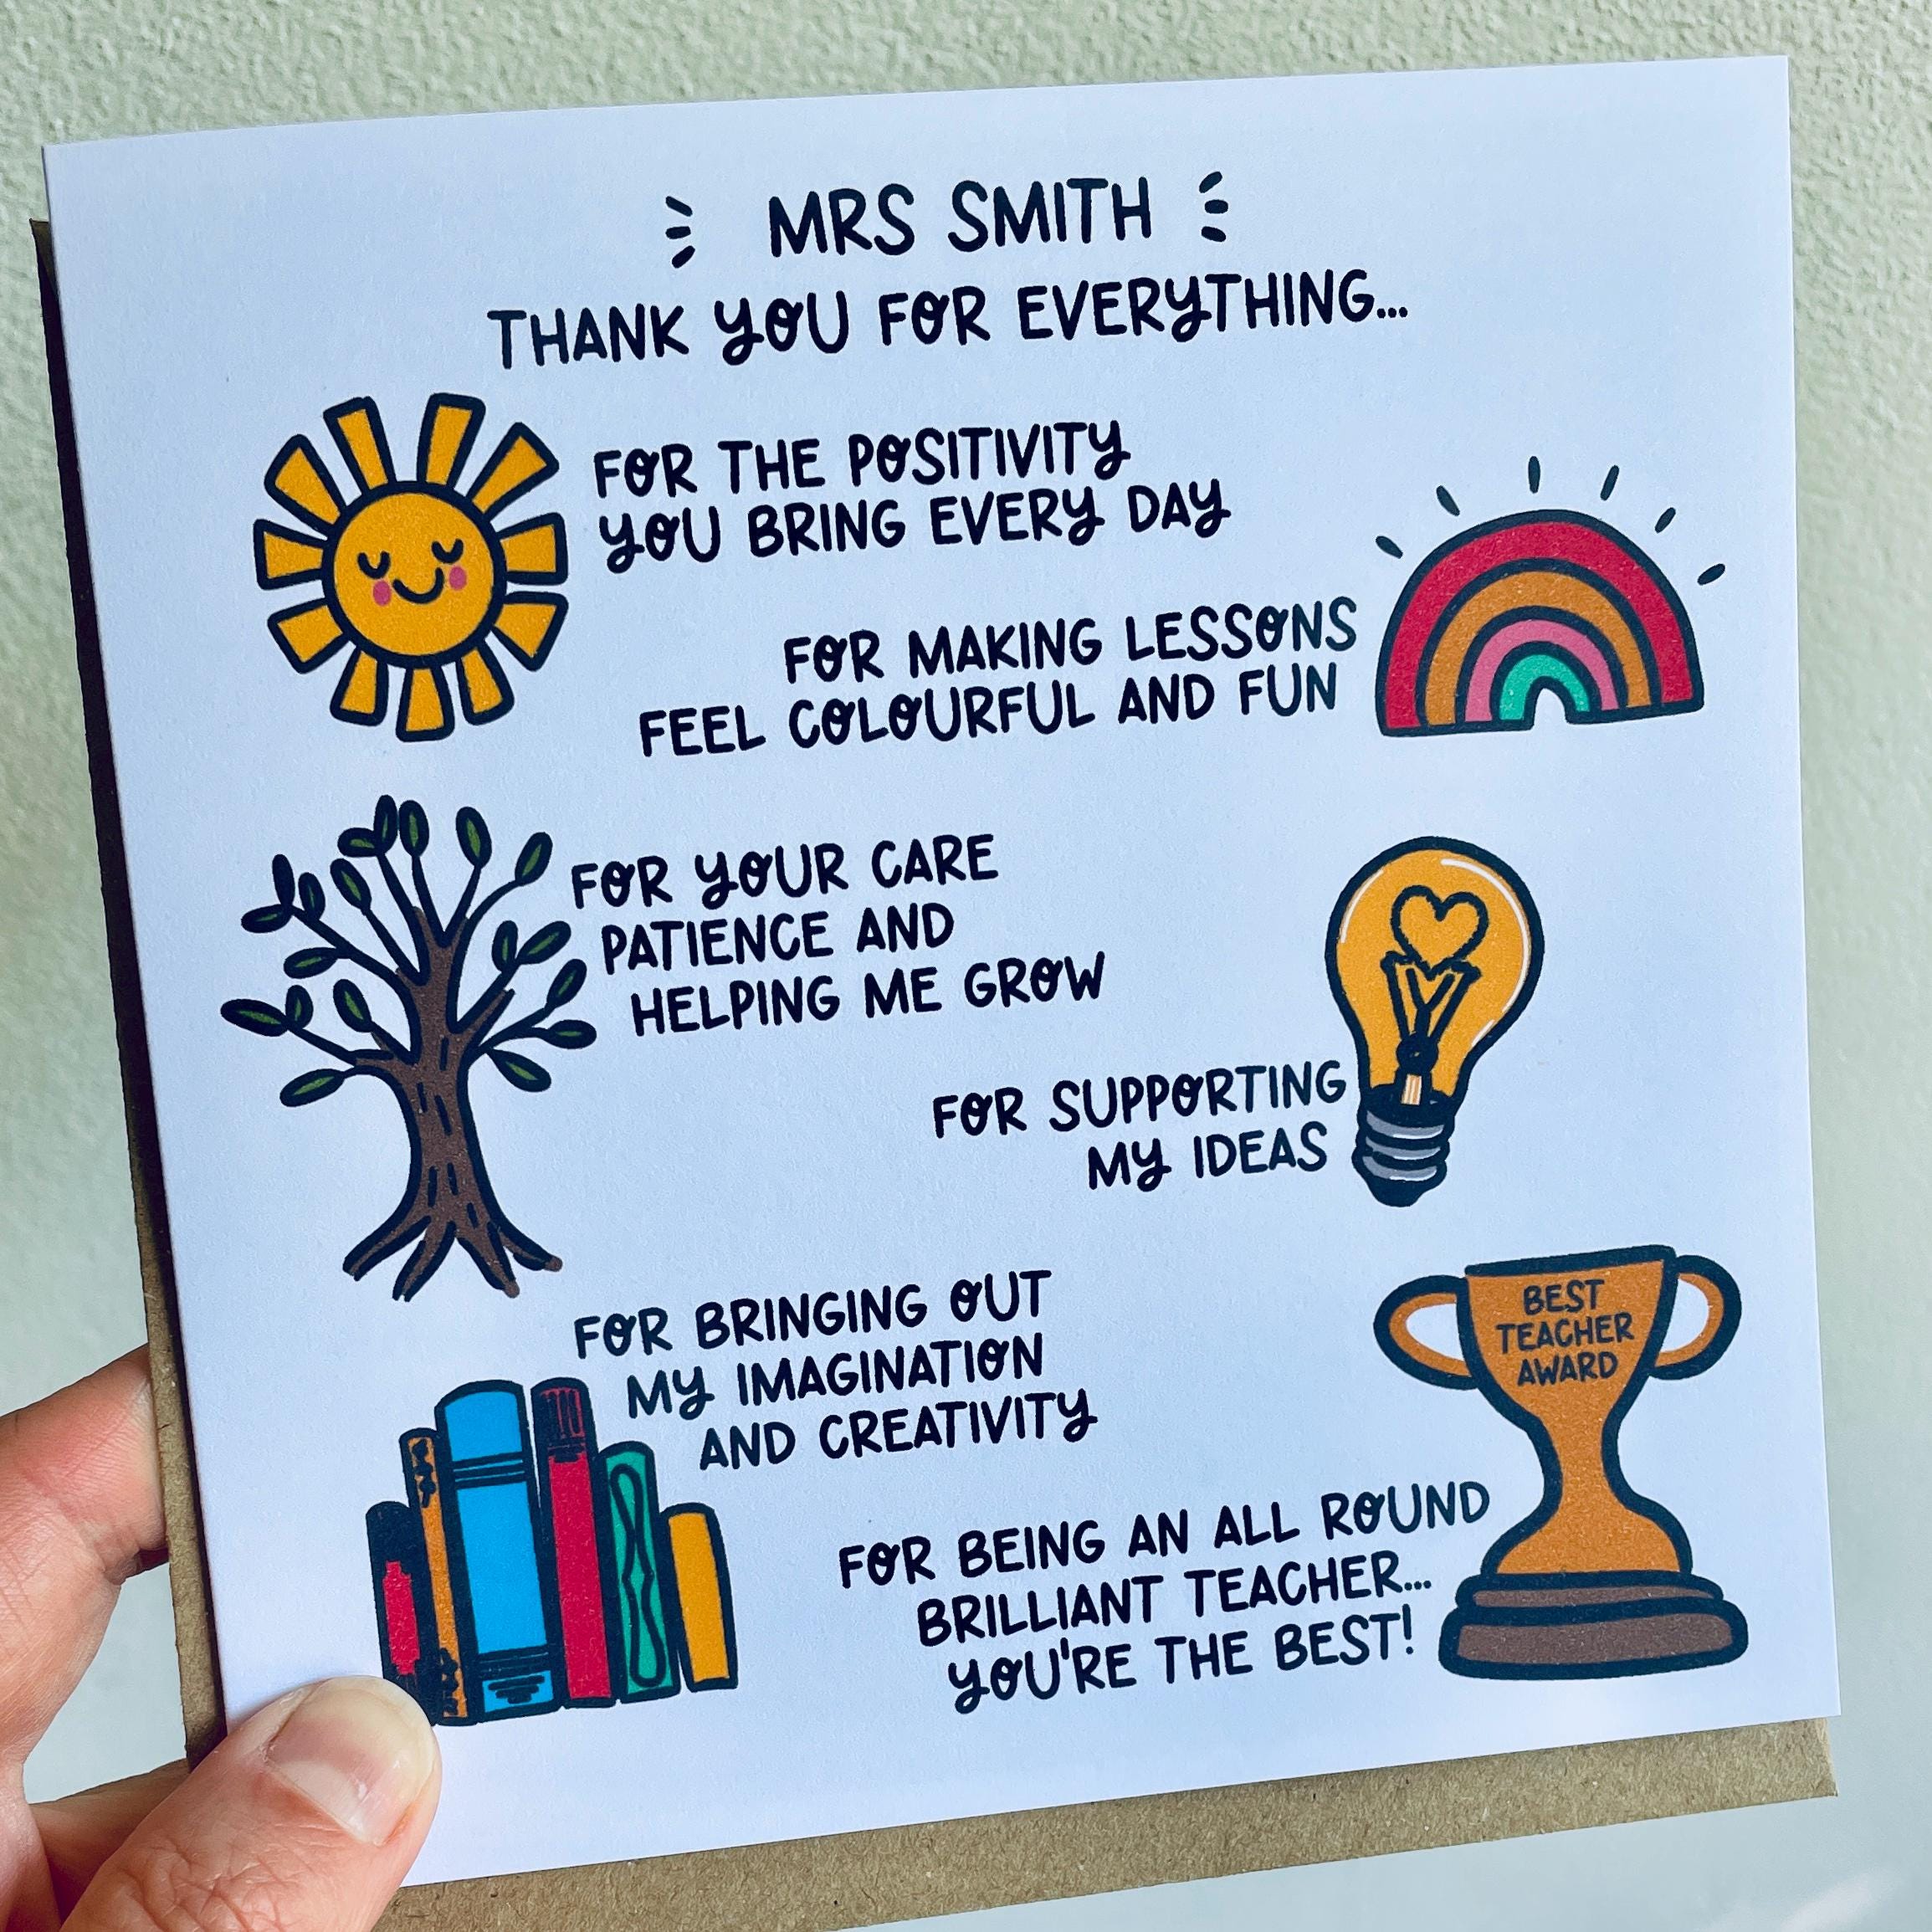 MRS SMITH
THANK YOU FOR EVERYTHING...
FOR THE POSITIVITY
YOU BRING EVERY DAY
FOR MAKING LESSONS
FEEL COLOURFUL AND FUN
FOR YOUR CARE
PATIENCE AND
HELPING ME GROW
FOR SUPPORTING
MY IDEAS
FOR BRINGING OUT
MY IMAGINATION
AND CREATIVITY
BEST
TEACHER
AWARD
FOR BEING AN ALL ROUND
BRILLIANT TEACHER...
YOU'RE THE BEST!